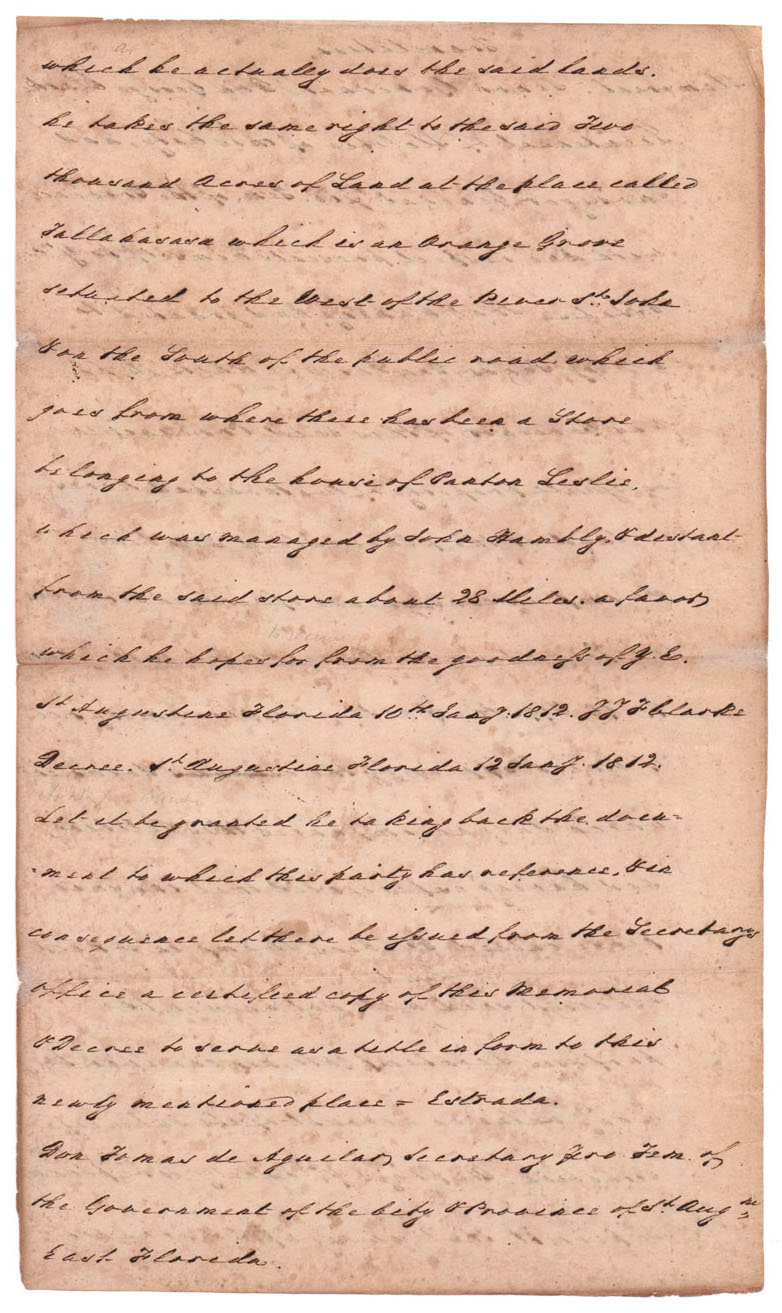 which he actually does the said lands.
he takes the same right to the said Two
thousand Acres of Land at the place called
Tallahasasa which is an Orange Grove
setuated to the West of the River St. John
& on the South of the public road which
goes from where there has been a Store
belonging to the house of Panton Leslie,
which was managed by John Hambly, & distant
from the said store about 28 Miles. a favor
which he hopes for from the goodness of Y. E.
St Augustine Florida 10th Jany. 1812. J J F Clarke
Decree. St Augustine Florida 12 Jany. 1812.
Let it be granted he taking back the docu=
=ment to which this party has reference, & in
consequence let there be issued from the Secretarys
office a certified copy of this Memorial
& Decree to serve as a title in form to this
newly mentioned place = Estrada.
Don Tomas de Aguilar, Secretary Pro Tem. of
the Government of the City & Province of St. Augne
East Florida.